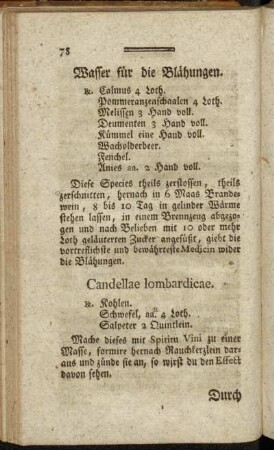 78
Wasser für die Blähungen.
℞. Calmus 4 Loth.
Pommeranzenschaalen 4 Loth.
Melissen 3 Hand voll.
Deumenten 3 Hand voll.
Kümmel eine Hand voll.
Wacholderbeer.
Fenchel.
Anies aa. 2 Hand voll.
Diese Species theils zerstossen, theils
zerschnitten, hernach in 6 Maas Brandes
wein, 8 bis 10 Tag in gelinder Wärme
stehen lassen, in einem Brennzeug abgezo-
gen und nach Belieben mit 10 oder mehr
Loth geläuterten Zucker angesüßt, giebt die
vortreflichste und bewährteste Medicin wider
die Blähungen.
Candellae lombardicae.
℞. Kohlen.
Schwefel, aa. 4 Loth.
Salpeter 2 Quintlein.
Mache dieses mit Spiritu Vini zu einer
Masse, farmire hernach Rauchkerzlein dar-
aus und zünde sie an, so wirst du den Effect
davon sehen.
Durch